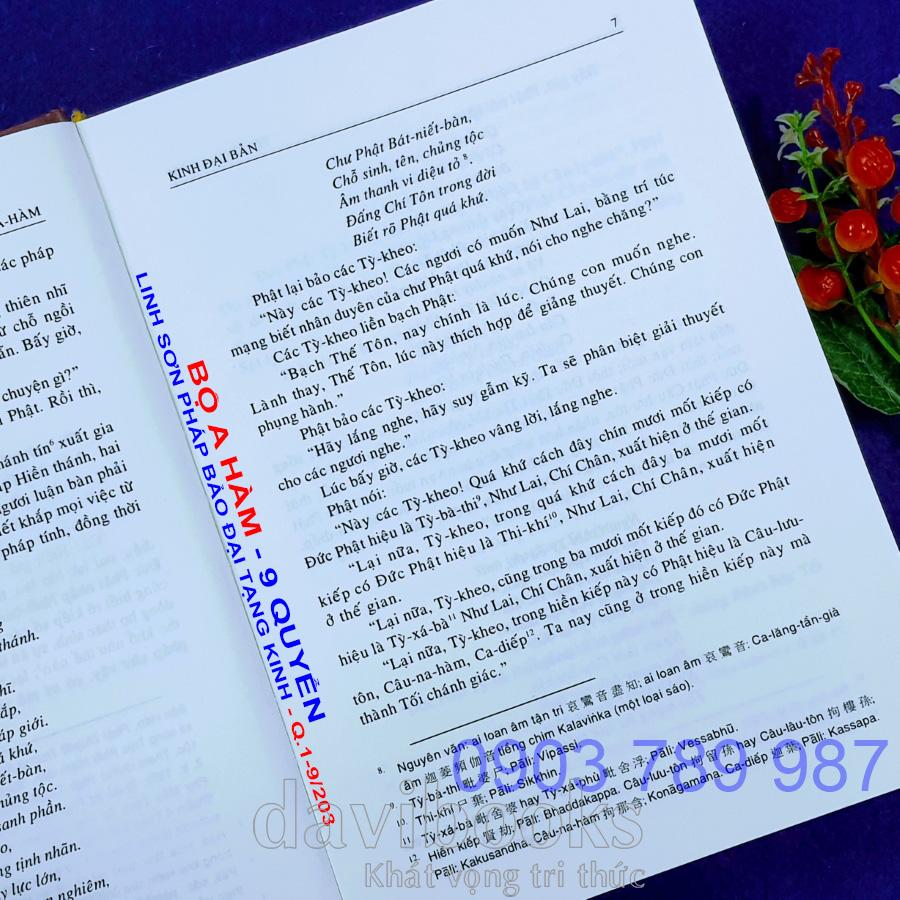 A-HÀM
ác pháp
thiên nhĩ
ừ chỗ ngồi
ấn. Bấy giờ,
chuyện gì?"
Phật. Rồi thì,
hánh tín⁶ xuất gia
áp Hiền thánh, hai
gười luận bàn phải
iết khắp mọi việc từ
pháp tính, đồng thời
thánh.
hĩ.
ắp,
áp giới.
á khứ,
iết-bàn,
hủng tộc.
sanh phần.
o,
g tịnh nhãn.
y lực lớn,
n nghiêm,
7
KINH ĐẠI BẢN
Chư Phật Bát-niết-bàn,
Chỗ sinh, tên, chủng tộc
Âm thanh vi diệu tỏ ⁸.
Đấng Chí Tôn trong đời
Biết rõ Phật quá khứ.
Phật lại bảo các Tỳ-kheo:
"Này các Tỳ-kheo! Các ngươi có muốn Như Lai, bằng trí túc
mạng biết nhân duyên của chư Phật quá khứ, nói cho nghe chăng?"
Các Tỳ-kheo liền bạch Phật:
"Bạch Thế Tôn, nay chính là lúc. Chúng con muốn nghe.
Lành thay, Thế Tôn, lúc này thích hợp để giảng thuyết. Chúng con
phụng hành."
Phật bảo các Tỳ-kheo:
"Hãy lắng nghe, hãy suy gẫm kỹ. Ta sẽ phân biệt giải thuyết
cho các ngươi nghe."
Lúc bấy giờ, các Tỳ-kheo vâng lời, lắng nghe.
Phật nói:
"Này các Tỳ-kheo! Quá khứ cách đây chín mươi mốt kiếp có
Đức Phật hiệu là Tỳ-bà-thi⁹, Như Lai, Chí Chân, xuất hiện ở thế gian.
"Lại nữa, Tỳ-kheo, trong quá khứ cách đây ba mươi mốt
kiếp có Đức Phật hiệu là Thi-khí¹⁰, Như Lai, Chí Chân, xuất hiện
ở thế gian.
"Lại nữa, Tỳ-kheo, cũng trong ba mươi mốt kiếp đó có Đức Phật
hiệu là Tỳ-xá-bà¹¹ Như Lai, Chí Chân, xuất hiện ở thế gian.
"Lại nữa, Tỳ-kheo, trong hiền kiếp này có Phật hiệu là Câu-lưu-
tôn, Câu-na-hàm, Ca-diếp¹². Ta nay cũng ở trong hiền kiếp này mà
thành Tối chánh giác."
8. Nguyên văn: ai loan âm tận tri 哀鸞音盡知; ai loan âm 哀鸞音: Ca-lăng-tần-già
âm 迦菱頻伽音 tiếng chim Kalaviṅka (một loại sáo).
Tỳ-bà-thi 毗婆尸, Pāli: Vipassī
10. Thi-khí 尸棄; Pāli: Sikkhin.
11. Tỳ-xá-bà 毗舍婆 hay Tỳ-xá-phù 毗舍浮, Pāli: Vessabhū.
12. Hiền kiếp 賢劫; Pāli: Bhaddakappa. Câu-lưu-tôn 拘留孫 hay Câu-lâu-tôn 拘樓孫;
Pāli: Kakusandha. Câu-na-hàm 拘那含; Konāgamana. Ca-diếp 迦葉, Pāli: Kassapa.
BỘ A HÀM - 9 QUYỂN
LINH SƠN PHÁP BẢO ĐẠI TẠNG KINH - Q.1-9/203
0903 789 987
davibooks
Khát vọng tri thức